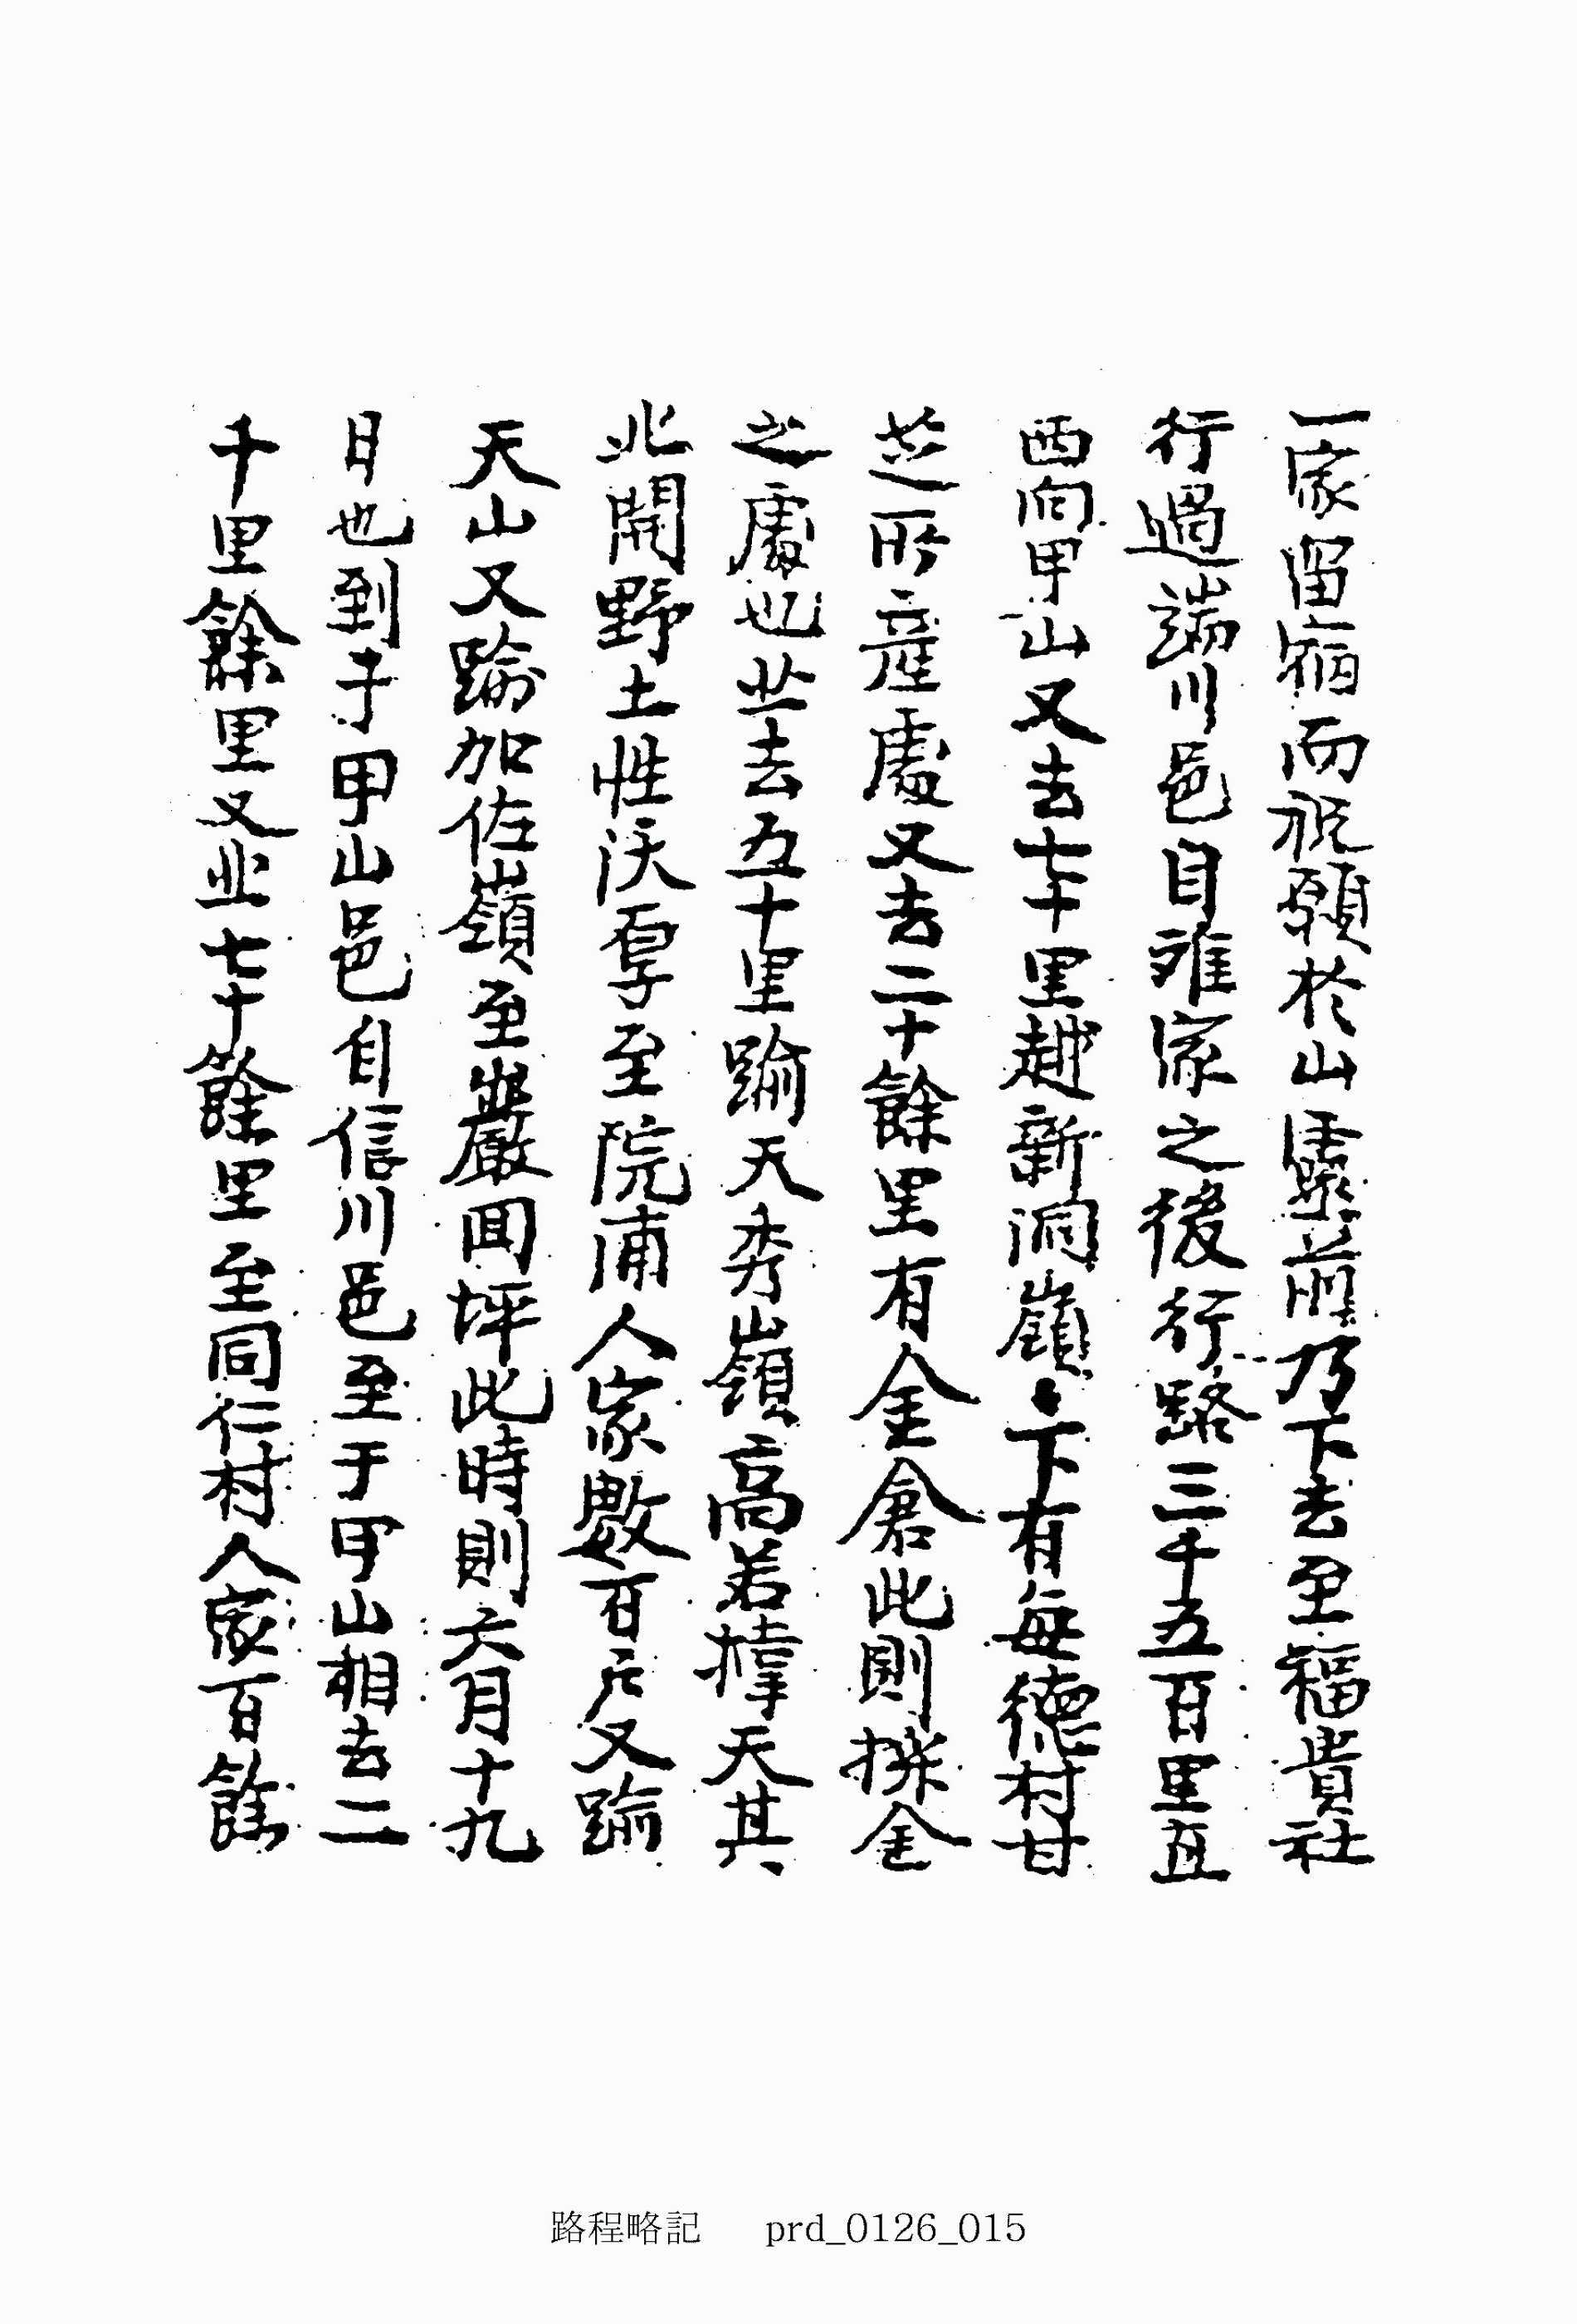 一家留宿而祝願於山靈前乃下去至福貴社
行過端川邑自難家之後行路三千五百里直
西向甲山又去七十里越新洞嶺〻下有每德村甘
芝所産處又去二十餘里有金倉此則採金
之處也北去五十里踰天秀嶺高若撑天其
北開野土性沃厚至院浦人家數百戶又踰
天山又踰加佐嶺至巖回坪此時則六月十九
日也到于甲山邑自信川邑至于甲山相去二
千里餘里又北七十餘里至同仁村人家百餘
路程略記 prd_0126_015